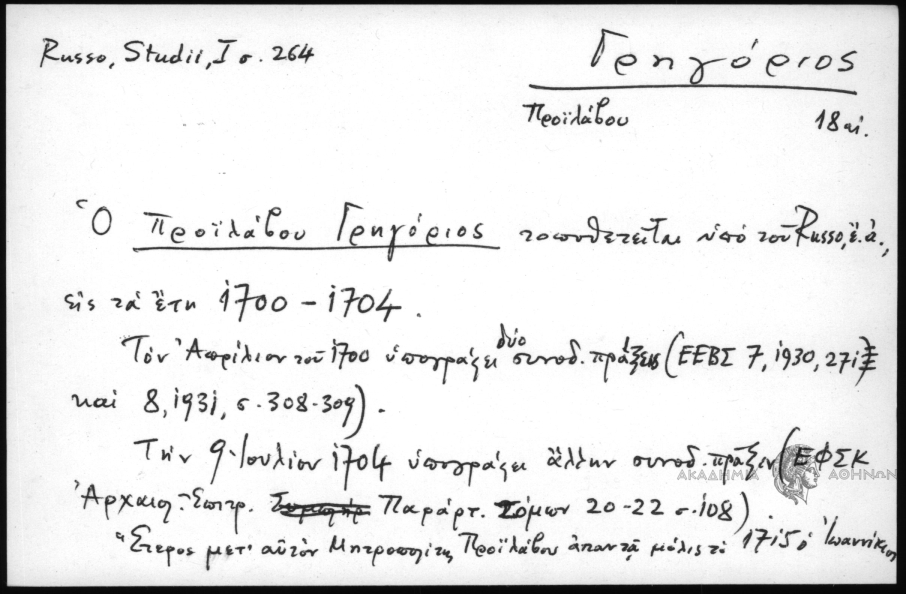 Russo, Studii, I σ. 264
Γρηγόριος
Προϊλάβου 18 αἰ.
Ὁ Προϊλάβου Γρηγόριος τοποθετεῖται ὑπό τοῦ Russo, ἔ.ἀ.,
εἰς τά ἔτη 1700 - 1704.
Τόν Ἀπρίλιον τοῦ 1700 ὑπογράφει δύο συνοδ. πράξεις (ΕΕΒΣ 7, 1930, 271
καί 8, 1931, σ. 308-309).
Τήν 9 Ἰουλίου 1704 ὑπογράφει ἄλλην συνοδ. πρᾶξιν (ΕΦΣΚ
Ἀρχαιολ. Ἐπιτρ. Παράρτ. Τόμων 20-22 σ. 108)
Ἕτερος μετ' αὐτόν Μητροπολίτης Προϊλάβου ἀπαντᾷ μόλις τό 1715 ὁ Ἰωαννίκιος
ΑΚΑΔΗΜΙΑ ΑΘΗΝΩΝ